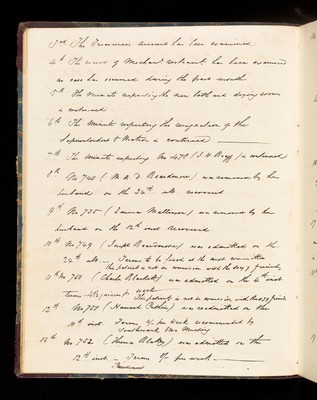 3rd The Treasurers account has been examined
4th The case of Mechanical restraint has been examined
no case has occurred during the past month
5th The minute respecting the new bath and dressing room
is continued
6th The Minute respecting the resignation of the
Superintendent & Matron is continued
7th The Minute respecting No 479 (J. H. ) is continued
8th No 740 (M. A. D. Beardmore) was removed by her
husband on the 24th ult recovered
9th No 725 (Emma ) was removed by her
husband on the 12th inst recovered
10th No 749 (Joseph ) was admitted on the
24th ult. — Terms to be fixed at the next committee
this patient is not in connexion with the Socy of friends
11th No 750 (Charles Blackett) was admitted on the 4th inst
terms per week
This patient is not in connexion with the Socy of friends
12th No 751 (Hannah ) was readmitted on the
10th inst. Terms per week recommended by
Mo Meeting
13th No 752 (Thomas ) was admitted on the
12th inst — Terms per week —